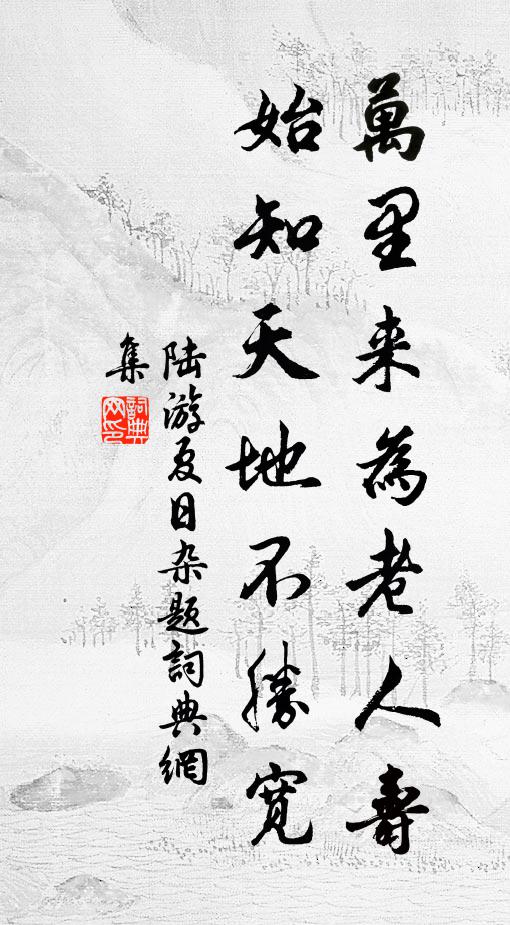 萬里来為老人壽
始知天地不勝寬
陆游夏日杂题詞典網
集
詞典
网印